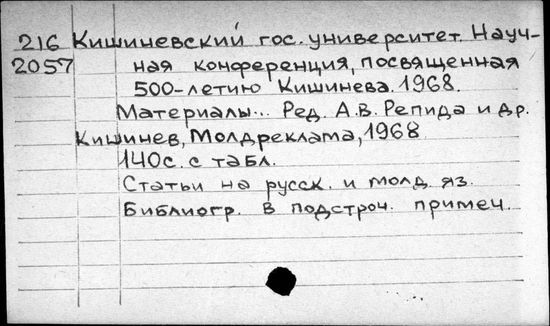 216 Кишиневский гос. университет. Науч-
2057 ная конференция, посвященная
500-летию Кишинева. 1968.
Материалы... Ред. А.В. Репида и др.
Кишинев, Молдреклама, 1968
140с. с табл.
Статьи на русск. и молд. яз.
Библиогр. в подстроч. примеч.